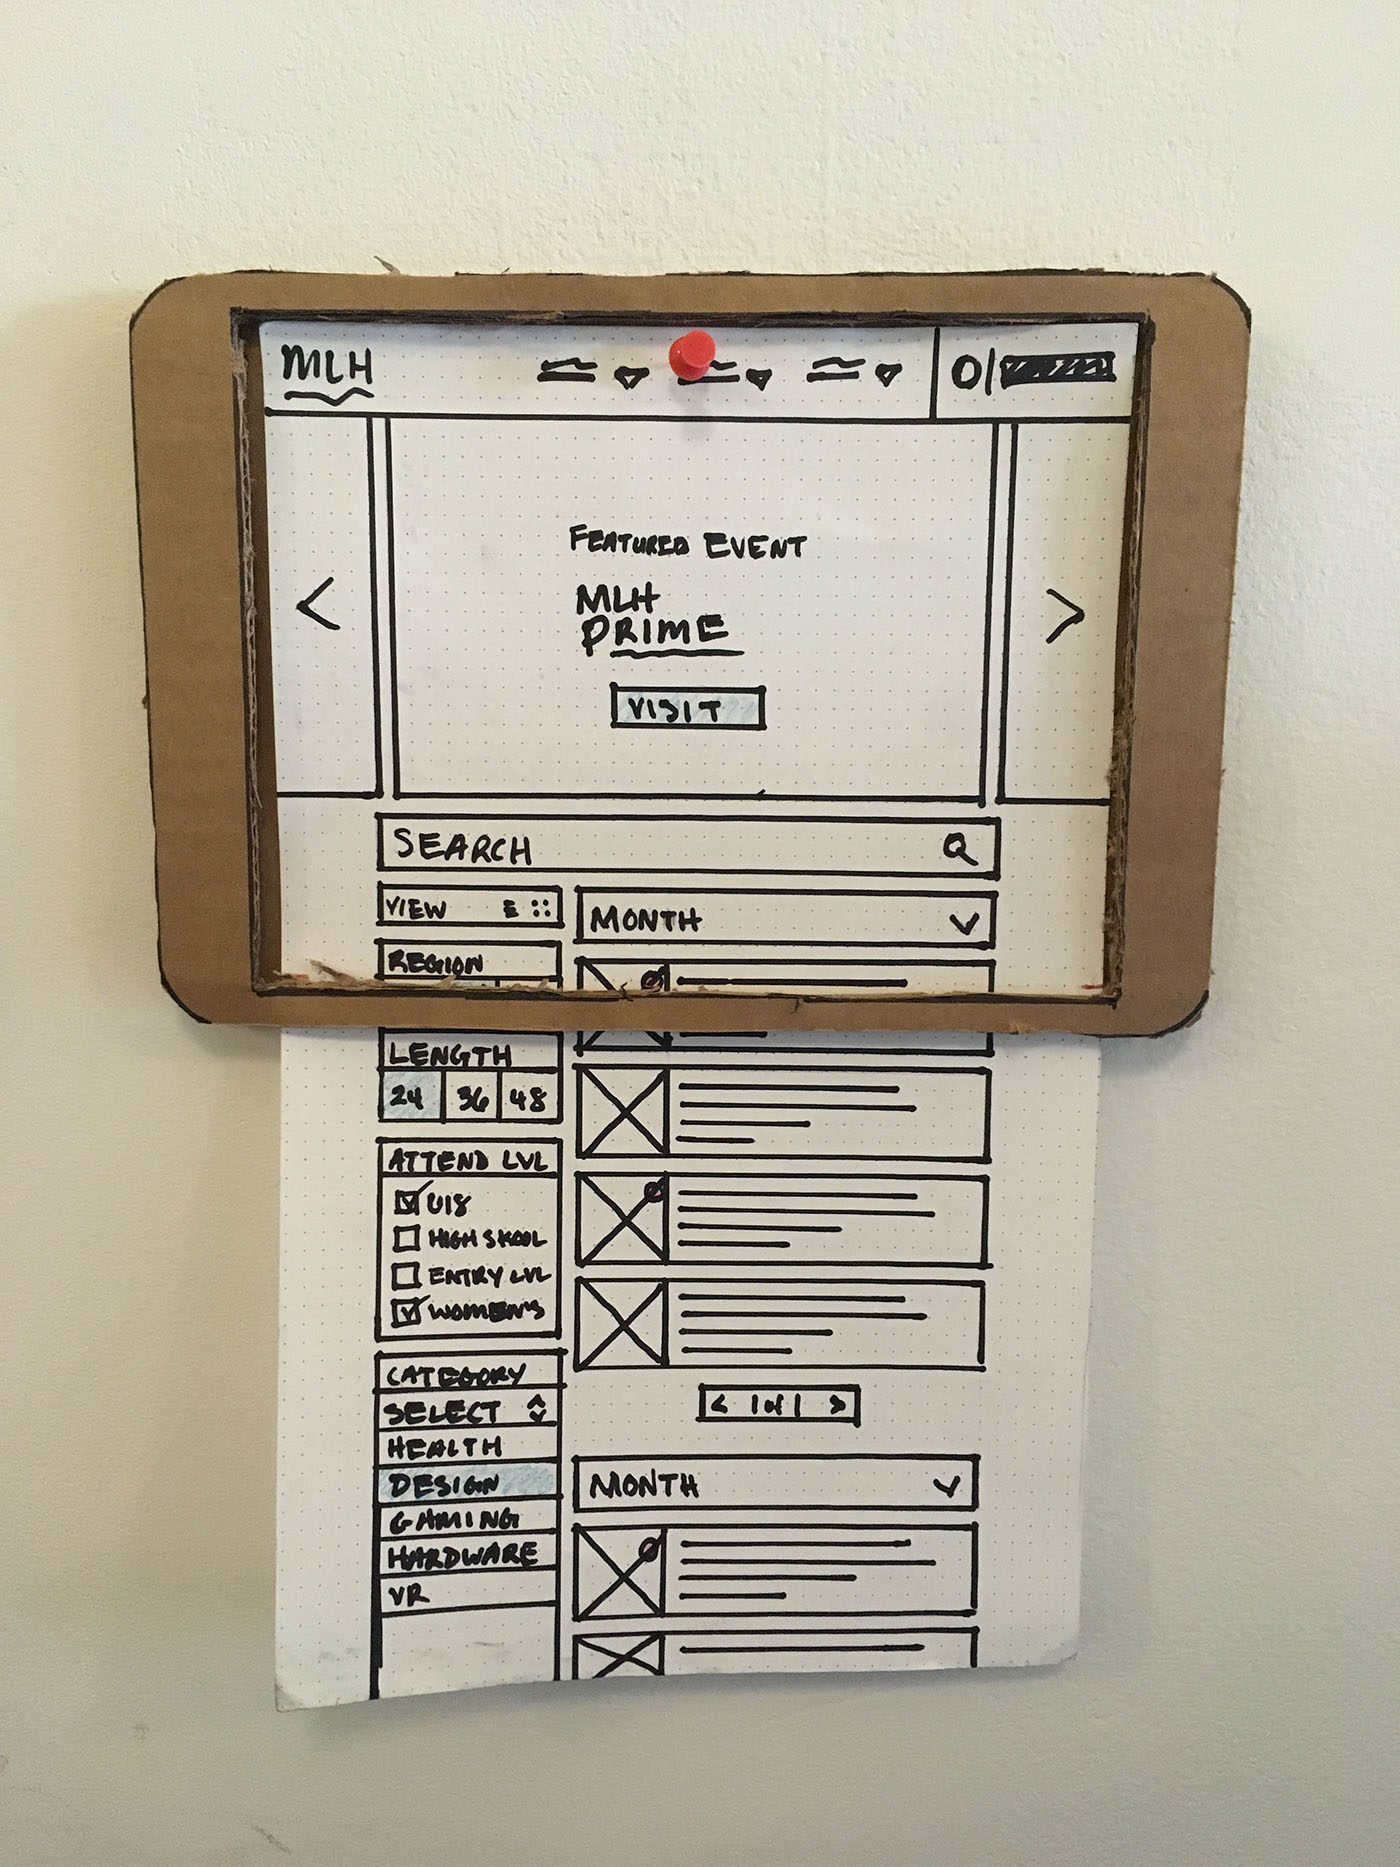 MLH
FEATURED EVENT
MLH
PRIME
VISIT
SEARCH
VIEW
MONTH
REGION
LENGTH
24 36 48
ATTEND LVL
U18
HIGH SKOOL
ENTRY LVL
WOMEN'S
CATEGORY
SELECT
HEALTH
DESIGN
GAMING
HARDWARE
VR
< 1 of 1 >
MONTH